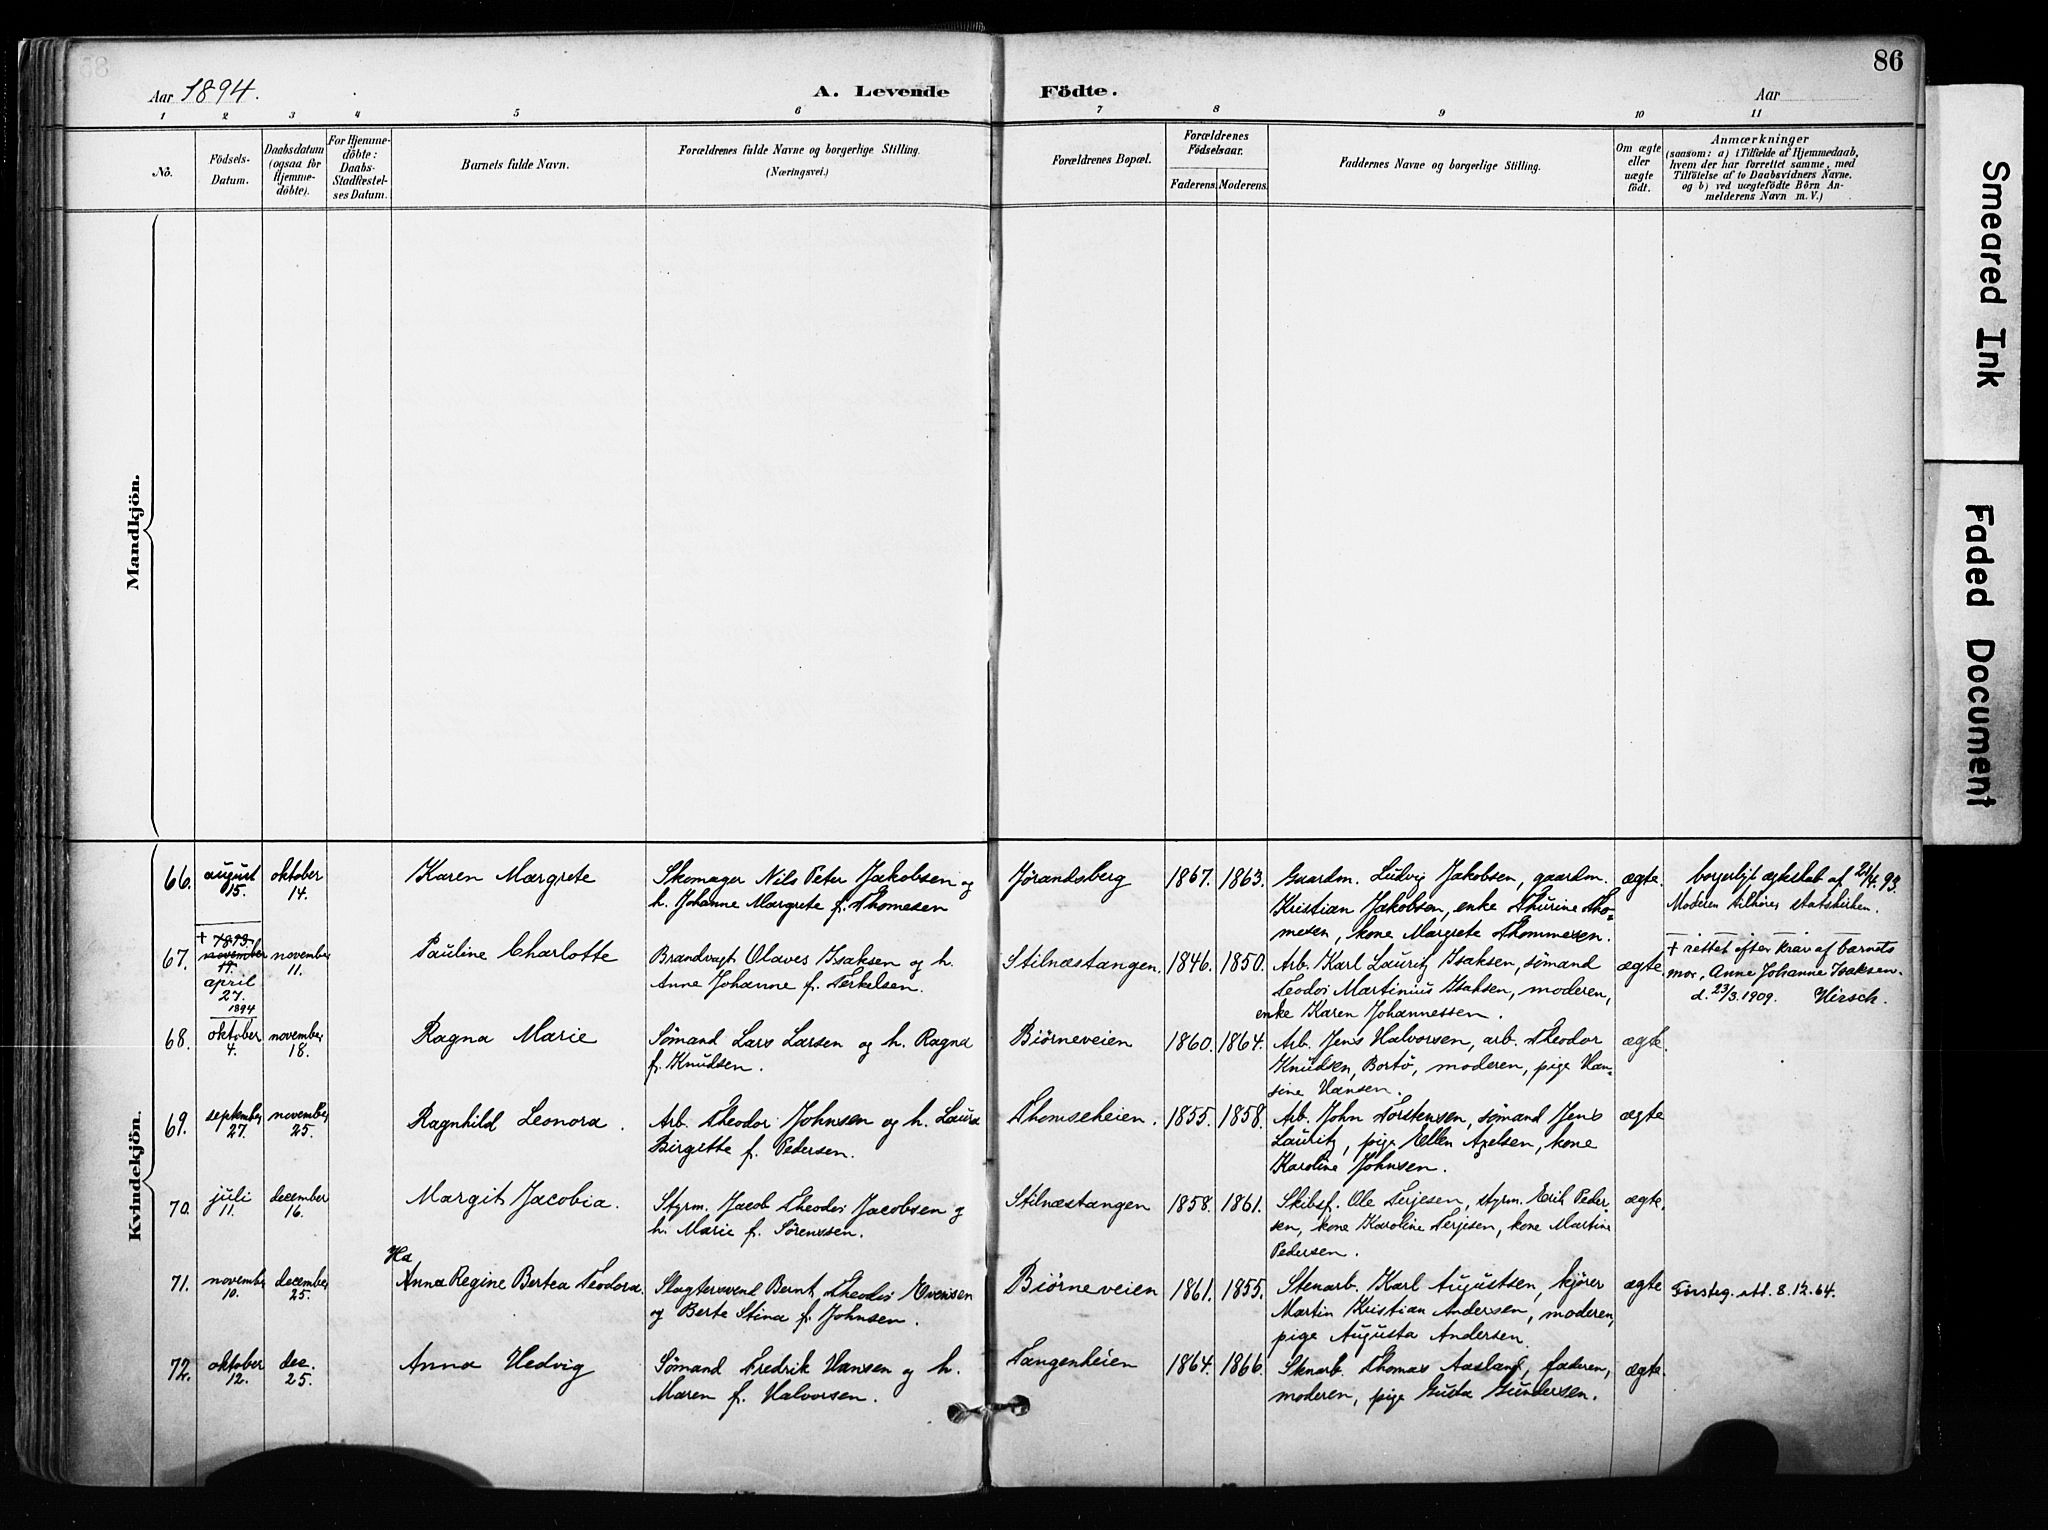 86
Aar 1894.
A. Levende Födte.
Aar
1 2 3 4 5 6 7 8 9 10 11
No.
Födsels-
Datum.
Daabsdatum
(ogsaa for
Hjemme-
döbte).
For Hjemme-
döbte:
Daabs-
Stadfæstel-
ses Datum.
Barnets fulde Navn.
Forældrenes fulde Navne og borgerlige Stilling.
(Næringsvei.)
Forældrenes Bopæl.
Forældrenes
Födselsaar.
Faderens. Moderens.
Faddernes Navne og borgerlige Stilling.
Om ægte
eller
uægte
födt.
Anmærkninger
(saasom: a) i Tilfælde af Hjemmedaab,
hvem der har forrettet samme, med
Tilföielse af to Daabsvidners Navne,
og b) ved uægtefödte Börn An-
melderens Navn m. V.)
Mandkjön.
Kvindekjön.
66.
august
15.
oktober
14.
Karen Margrete
Skomager Nils Peter Jakobsen og
h. Johanne Margrete f. Thomesen
Jørandsberg
1867. 1863.
Gaardm. Ludvig Jakobsen, gaardm.
Kristian Jakobsen, enke Thurine Tho-
mesen, kone Margrete Thommesen.
ægte.
borgerligt ægteskab af 21/4 93.
Moderen tilhører statskirken.
67.
+ 1893.
november
17.
april
27.
1894
november
11.
Pauline Charlotte
Brandvagt Olaves Isaksen og h.
Anne Johanne f. Terkelsen.
Stilnæstangen.
1846. 1850.
Arb. Karl Lauritz Isaksen, sømand
Teodor Martinius Isaksen, moderen,
enke Karen Johannessen.
ægte.
+ rettet efter krav af barnets
mor, Anne Johanne Isaksen.
d. 23/3.1909. Hirsch.
68.
oktober
4.
november
18.
Ragna Marie
Sømand Lars Larsen og h. Ragna
f. Knudsen.
Biørneveien
1860. 1864.
Arb. Jens Halvorsen, arb. Theodor
Knudsen, Bortø, moderen, pige Han-
sine Hansen.
ægte.
69.
september
27.
november
25.
Ragnhild Leonora.
Arb. Theodor Johnsen og h. Laura
Birgitte f. Pedersen.
Thomseheien.
1855. 1858.
Arb. John Torstensen, sømand Jens
Lauritz, pige Ellen Axelsen, kone
Karoline Johnsen.
ægte
70.
juli
11.
december
16.
Margit Jacobia.
Styrm. Jacob Theodor Jacobsen og
h. Marie f. Sørenssen.
Stilnæstangen
1858. 1861.
Skibsf. Ole Terjesen, styrm. Erik Peder-
sen, kone Karoline Terjesen, kone Martine
Pedersen.
ægte.
71.
november
10.
december
25.
Ha
Anna Regine Bertea Teodora.
Slagtersvend Bernt Theodor Evensen
og Berte Stina f. Johnsen.
Biørneveien
1861. 1855.
Stenarb. Karl Augustsen, kjører
Martin Kristian Andersen, moderen,
pige Augusta Andersen.
ægte
Førsteg. att. 8.12.64.
72.
oktober
12.
dec.
25.
Anna Hedvig
Sømand Fredrik Hansen og h.
Maren f. Halvorsen.
Tangenheien
1864. 1866.
Stenarb. Thomas Aasland, faderen,
moderen, pige Gusta Gundersen.
ægte.
Smeared Ink
Faded Document